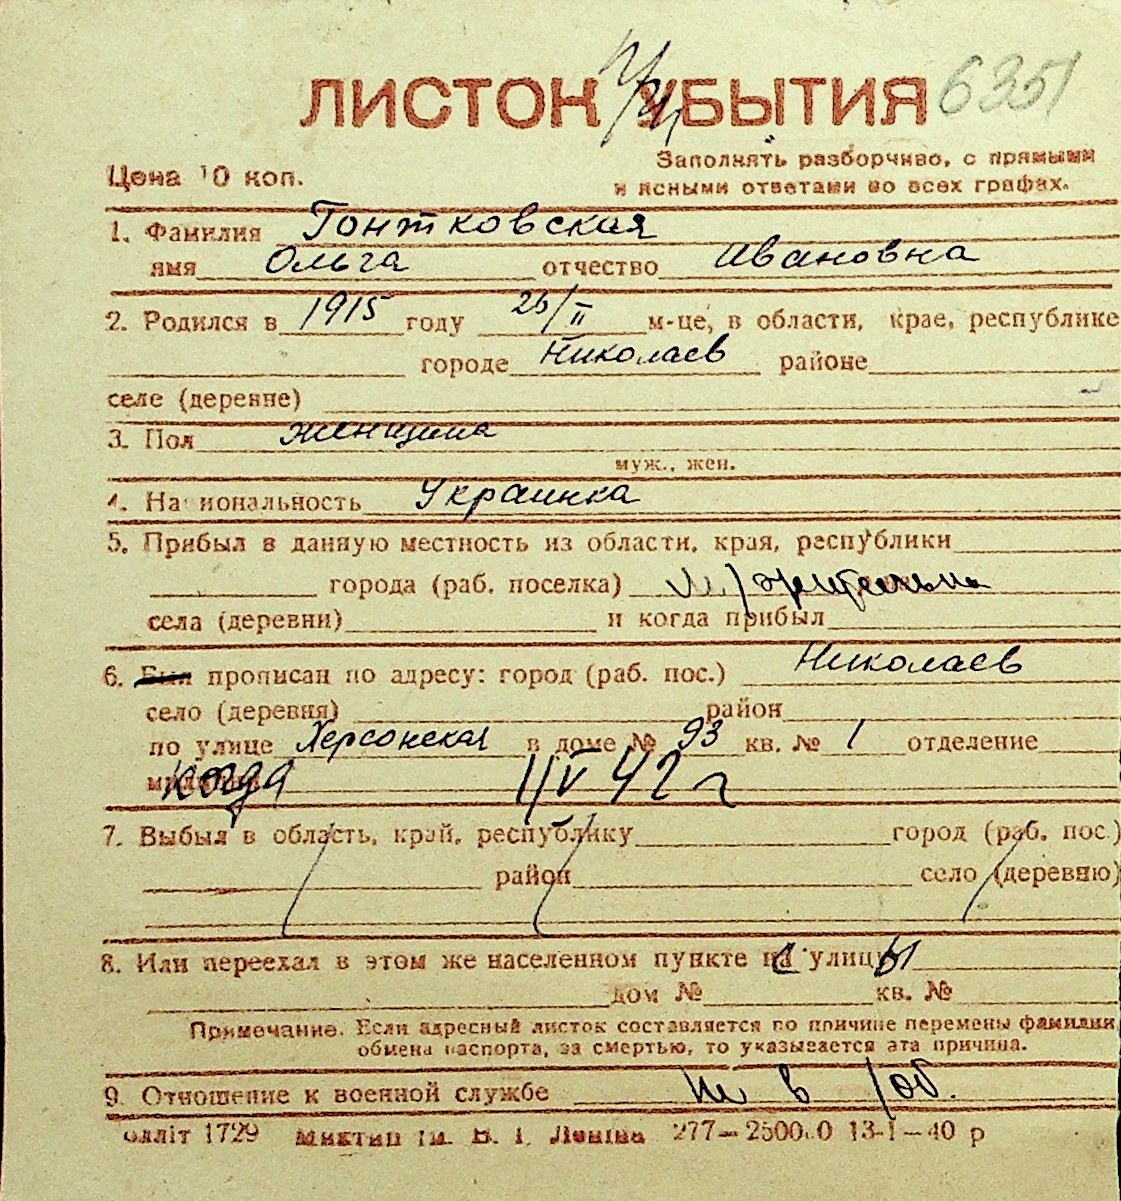 ЛИСТОК УБЫТИЯ 6351
Цена 10 коп.
Заполнять разборчиво, с прямыми
и ясными ответами во всех графах.
1. Фамилия Гонтковская
имя Ольга отчество Ивановна
2. Родился в 1915 году 26/II м-це, в области, крае, республике
городе Николаев районе
селе (деревне)
3. Пол женщина
муж., жен.
4. Национальность Украинка
5. Прибыл в данную местность из области, края, республики
города (раб. поселка)
села (деревни) и когда прибыл
6. Был прописан по адресу: город (раб. пос.) Николаев
село (деревня) район
по улице Херсонская в доме № 93 кв. № 1 отделение
милиции когда 1/V 42 г
7. Выбыл в область, край, республику город (раб. пос.)
район село (деревню)
8. Или переехал в этом же населенном пункте с улицы
дом № кв. №
Примечание. Если адресный листок составляется по причине перемены фамилии,
обмена паспорта, за смертью, то указывается эта причина.
9. Отношение к военной службе
1729 ім. В. І. Леніна 277— 13-I—40 р